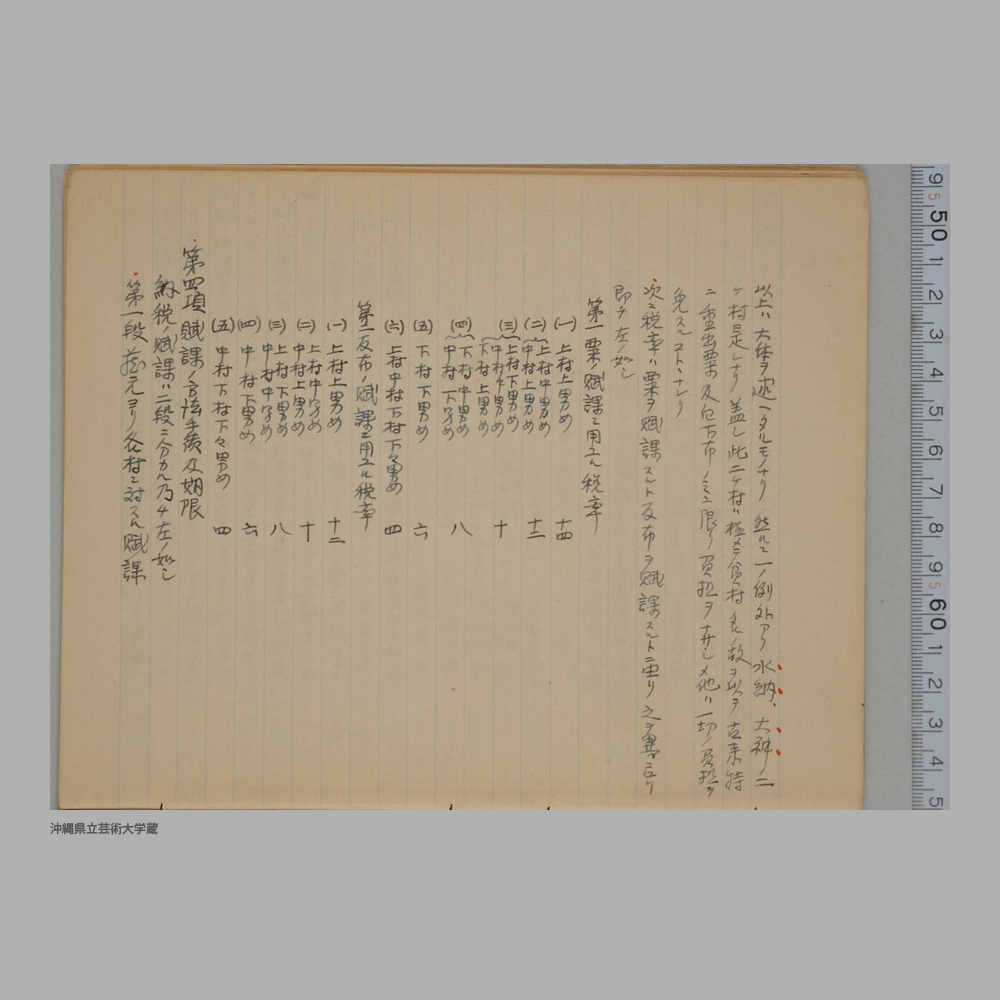 以上ハ大体ヲ述ヘタルモノナリ 然ルニ一ノ例外アリ 水納、大神ノ二
ケ村是レナリ 蓋シ此二ケ村ハ極メテ貧村ナルノ故ヲ以テ古来特
ニ重出粟及白下布ノミニ限リ負担ヲナサシメ他ハ一切ノ負担ヲ
免スルコトヽナレリ
次ニ税率ハ粟ヲ賦課スルト反布ヲ賦課スルトニ由リ之ヲ異ニセリ
即チ左ノ如シ
第一 粟ノ賦課ニ用ユル税率
(一) 上村上男女 十四
(二) 上村中男女 中村上男女 十二
(三) 上村下男女 中村中男女 下村上男女 十
(四) 下村中男女 中村下男女 八
(五) 下村下男女 六
(六) 上村中村下村下々男女 四
第二 反布ノ賦課ニ用ユル税率
(一) 上村上男女 十二
(二) 上村中男女 中村上男女 十
(三) 上村下男女 中村中男女 八
(四) 中村下男女 六
(五) 中村下村下々男女 四
第四項 賦課ノ方法手続及期限
納税ノ賦課ハ二段ニ分カル乃チ左ノ如シ
第一段 蔵元ヨリ各村ニ対スル賦課
9 50 1 2 3 4 5 6 7 8 9 60 1 2 3 4 5
沖縄県立芸術大学蔵